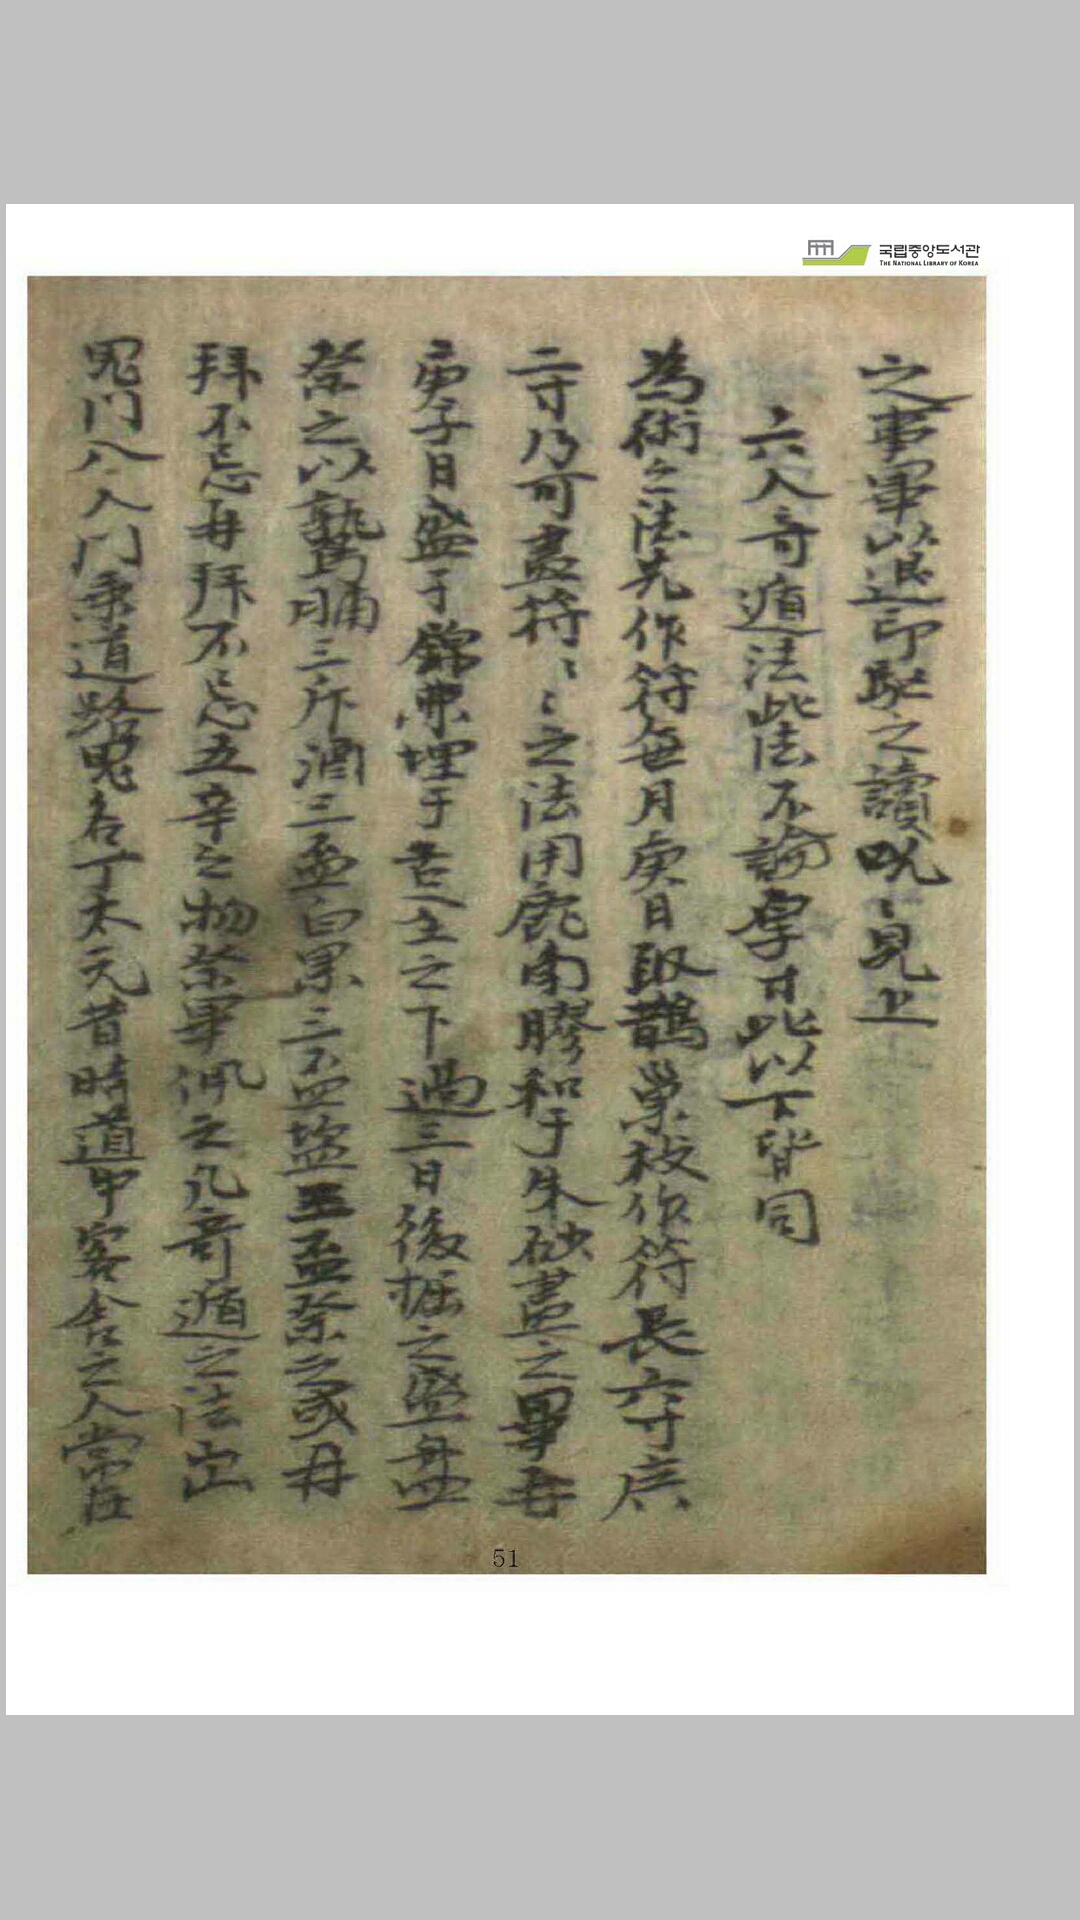 국립중앙도서관
THE NATIONAL LIBRARY OF KOREA
之事畢以送即馳之讀呪〻見上
六人奇遁法此法不論 此以下皆同
為術之法先作符每月庚日取鵲巢枝作符長六寸广
二寸乃可畫符〻〻之法用鹿角膠和于朱砂畫之畢
庚子日盛于 埋于 土之下過三日後掘之盛
祭之以 脯三斤酒三盃白果三 盃祭之或再
拜不忘再拜不忘五辛之物祭畢佩之凡奇遁之法出
鬼門入入門乘道路鬼名丁太元昔時道中客舍之人常在
51